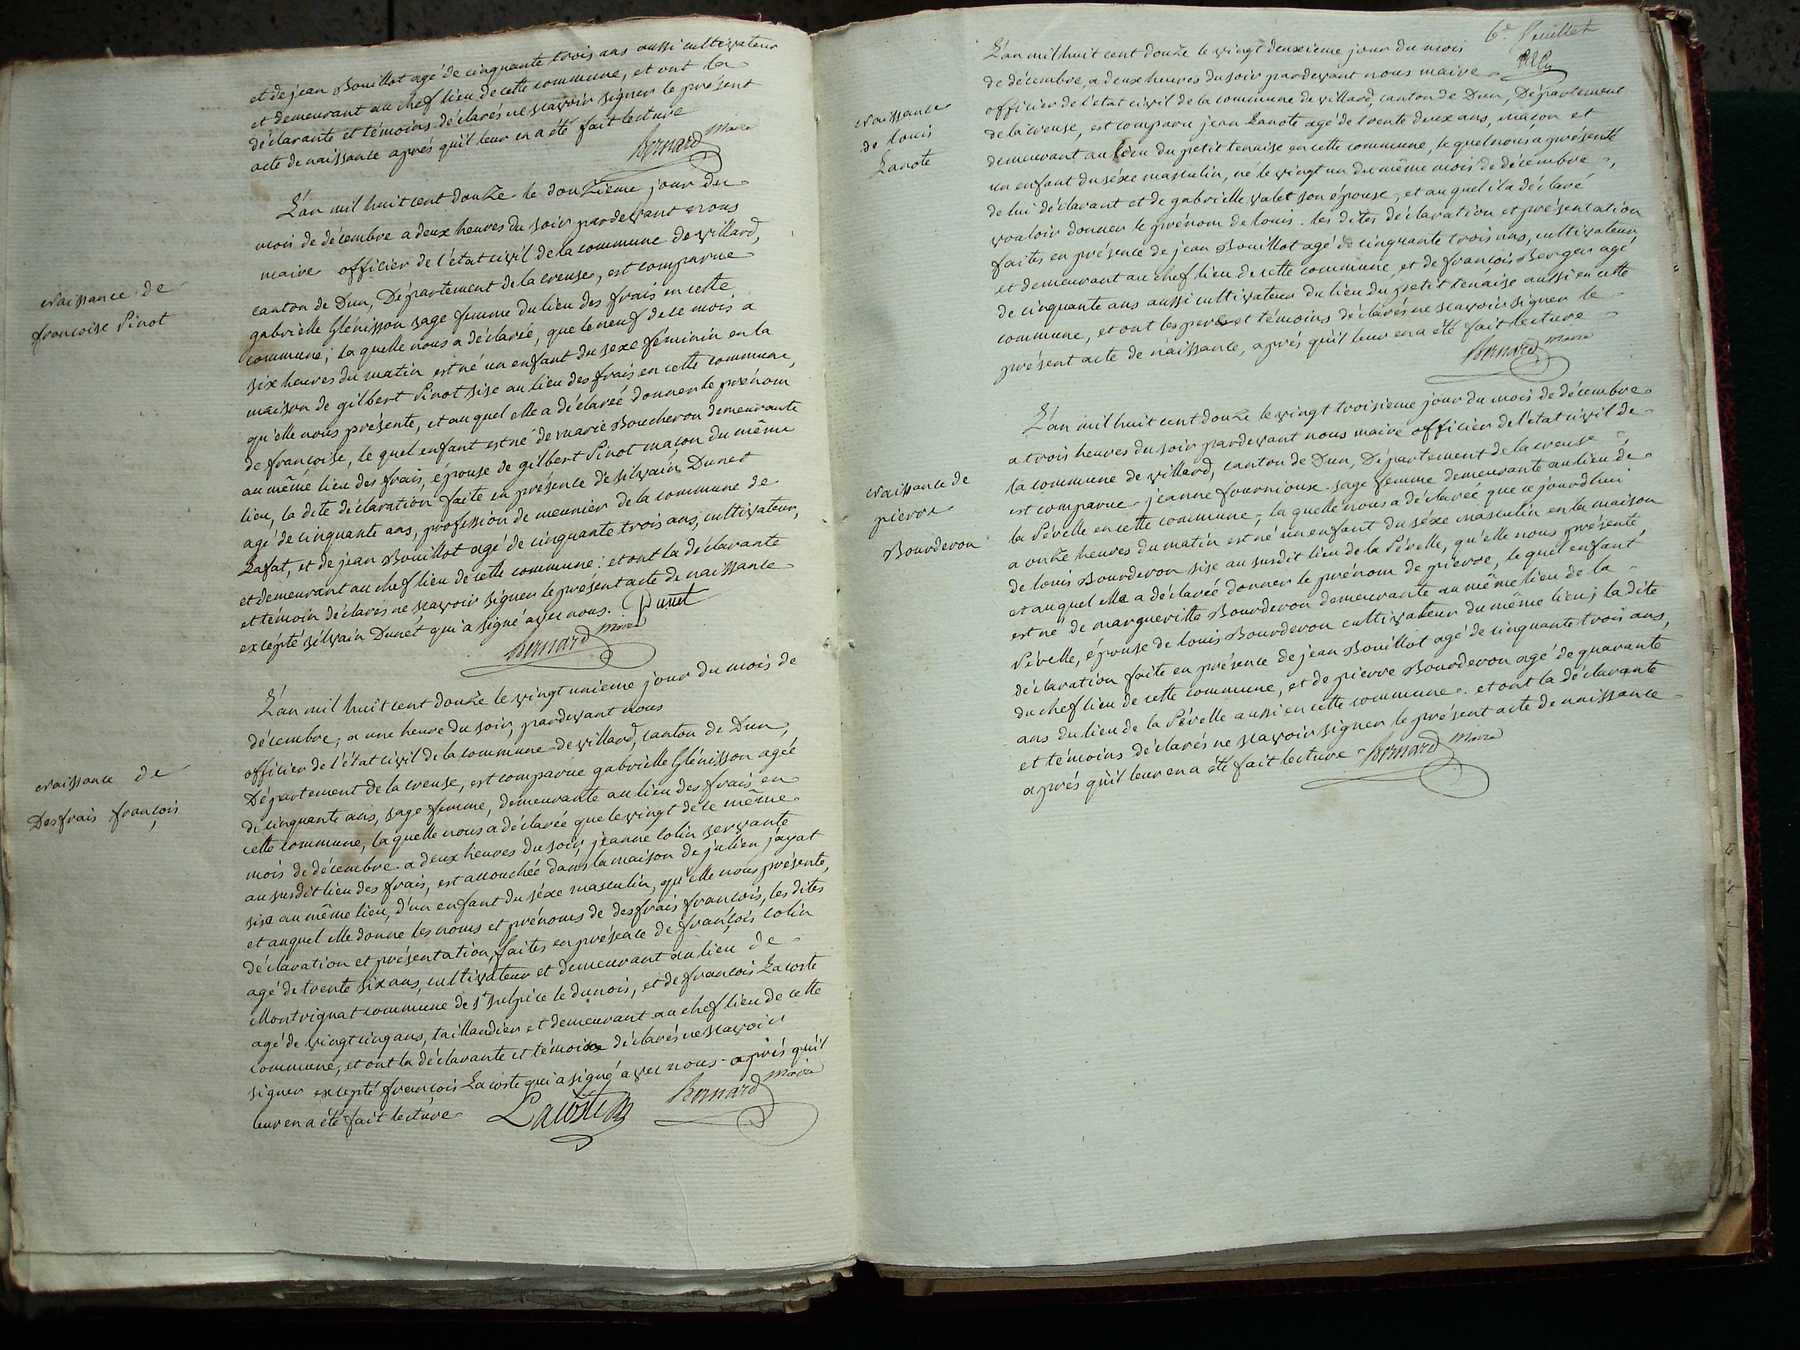 et de jean Bouillot agé de cinquante trois ans aussi cultivateur
et demeurant au chef lieu de cette commune, et ont la
déclarante et témoins déclarés ne scavoir signer le présent
acte de naissance aprés qu'il leur en a été fait lecture
Bernard maire
naissance de
françoise Pinot
L'an mil huit cent douze le douzieme jour du
mois de décembre a deux heures du soir pardevant nous
maire officier de l'état civil de la commune de villard,
canton de Dun, Département de la creuse, est comparue
gabrielle Glénisson sage femme du lieu des frais en cette
commune; la quelle nous a déclarée, que le neuf de ce mois a
six heures du matin est né un enfant du sexe féminin en la
maison de gilbert Pinot sise au lieu des frais en cette commune,
qu'elle nous présente, et auquel elle a déclareé donner le prénom
de françoise, le quel enfant est né de marie Boucheron demeurante
au même lieu des frais, épouse de gilbert Pinot macon du même
lieu, la dite déclaration faite en présence de silvain Dunet
agé de cinquante ans, profession de meunier de la commune de
Lafat, et de jean Bouillot agé de cinquante trois ans, cultivateur,
et demeurant au chef lieu de cette commune: et ont la déclarante
et témoin déclarés ne scavoir signer le présent acte de naissance
excepté silvain Dunet qui a signé avec nous. Dunet
Bernard maire
naissance de
Desfrais françois
L'an mil huit cent douze le vingt unieme jour du mois de
décembre, a une heure du soir, pardevant nous
officier de l'état civil de la commune de villard, canton de Dun,
Département de la creuse, est comparue gabrielle Glénisson ageé
de cinquante ans, sage femme, demeurante au lieu des frais en
cette commune, la quelle nous a déclarée que le vingt de ce même
mois de décembre a deux heures du soir, jeanne Colin servante
au susdit lieu des frais, est accouchée dans la maison de julien jayat
sise au même lieu, d'un enfant du séxe masculin, qu'elle nous présente,
et auquel elle donne les noms et prénoms de desfrais françois, les dites
déclaration et présentation, faites en présence de françois colin
agé de trente six ans, cultivateur et demeurant au lieu de
Montvignat commune de st sulpice le dunois, et de françois Lacoste
agé de vingt cinq ans, taillandier et demeurant au chef lieu de cette
commune, et ont la déclarante et témoins déclarés ne scavoir
signer excepté françois Lacoste qui a signé avec nous aprés qu'il
leur en a été fait lecture Lacoste Bernard maire
6e feuillet
naissance
de louis
Lanote
L'an mil huit cent douze le vingt deuxieme jour du mois
de décembre, a deux heures du soir pardevant nous maire
officier de l'état civil de la commune de villard, canton de Dun, Département
de la creuse, est comparu jean Lanote agé de trente deux ans, macon et
demeurant au lieu du petit tenaise en cette commune, le quel nous a présenté
un enfant du séxe masculin, né le vingt un du même mois de décembre,
de lui déclarant et de gabrielle valet son épouse, et au quel il a déclaré
vouloir donner le prénom de louis. les dites déclaration et présentation
faites en présence de jean Bouillot agé de cinquante trois ans, cultivateur,
et demeurant au chef lieu de cette commune, et de françois Berger agé
de cinquante ans aussi cultivateur du lieu du petit tenaise aussi en cette
commune, et ont les pere et témoins déclarés ne scavoir signer le
présent acte de naissance, aprés qu'il leur en a été fait lecture
Bernard maire
naissance de
pierre
Bourderon
L'an mil huit cent douze le vingt troisieme jour du mois de décembre
a trois heures du soir pardevant nous maire officier de l'état civil de
la commune de villard, canton de Dun, Département de la creuse
est comparue jeanne fournioux sage femme demeurante au lieu de
la Pérelle en cette commune, la quelle nous a déclarée que ce jourd'hui
a onze heures du matin est né un enfant du séxe masculin en la maison
de louis Bourderon sise au susdit lieu de la Pérelle, qu'elle nous présente,
et au quel elle a déclareé donner le prénom de pierre, le quel enfant
est né de margueritte Bourderon demeurante au même lieu de la
Pérelle, épouse de louis Bourderon cultivateur du même lieu; la dite
déclaration faite en présence de jean Bouillot agé de cinquante trois ans,
du chef lieu de cette commune, et de pierre Bourderon agé de quarante
ans du lieu de la Pérelle aussi en cette commune. et ont la déclarante
et témoins déclarés ne scavoir signer le présent acte de naissance
aprés qu'il leur en a été fait lecture Bernard maire